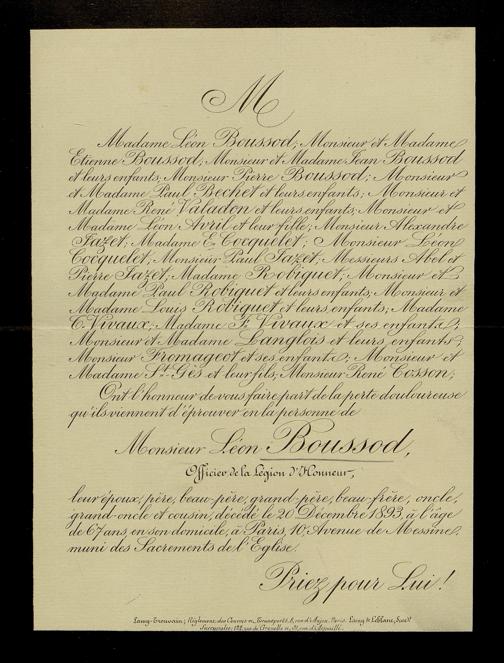 M
Madame Léon Boussod; Monsieur et Madame
Etienne Boussod; Monsieur et Madame Jean Boussod
et leurs enfants; Monsieur Pierre Boussod; Monsieur
et Madame Paul Bochet et leurs enfants; Monsieur et
Madame René Valadon et leurs enfants; Monsieur et
Madame Léon Avril et leur fille; Monsieur Alexandre
Fazet; Madame E. Cocquelet; Monsieur Léon
Cocquelet; Monsieur Paul Fazet; Messieurs Abel et
Pierre Fazet; Madame Robiquet, Monsieur et
Madame Paul Robiquet et leurs enfants; Monsieur et
Madame Louis Robiquet et leurs enfants; Madame
C. Vivaux; Madame F. Vivaux et ses enfants;
Monsieur et Madame Langlois et leurs enfants;
Monsieur Fromageot et ses enfants; Monsieur et
Madame St Gès et leur fils; Monsieur René Cosson;
Ont l'honneur de vous faire part de la perte douloureuse
qu'ils viennent d'éprouver en la personne de
Monsieur Léon Boussod,
Officier de la Légion d'Honneur,
leur époux, père, beau-père, grand-père, beau-frère, oncle,
grand-oncle et cousin, décédé le 20 Décembre 1893, à l'âge
de 67 ans, en son domicile, à Paris, 10, Avenue de Messine,
muni des Sacrements de l'Eglise.
Priez pour Lui!
Règlement des Convois et Transports, 8, rue d'Anjou, Paris. Lamy & Leblanc, Succrs
Succursale: rue de Grenelle